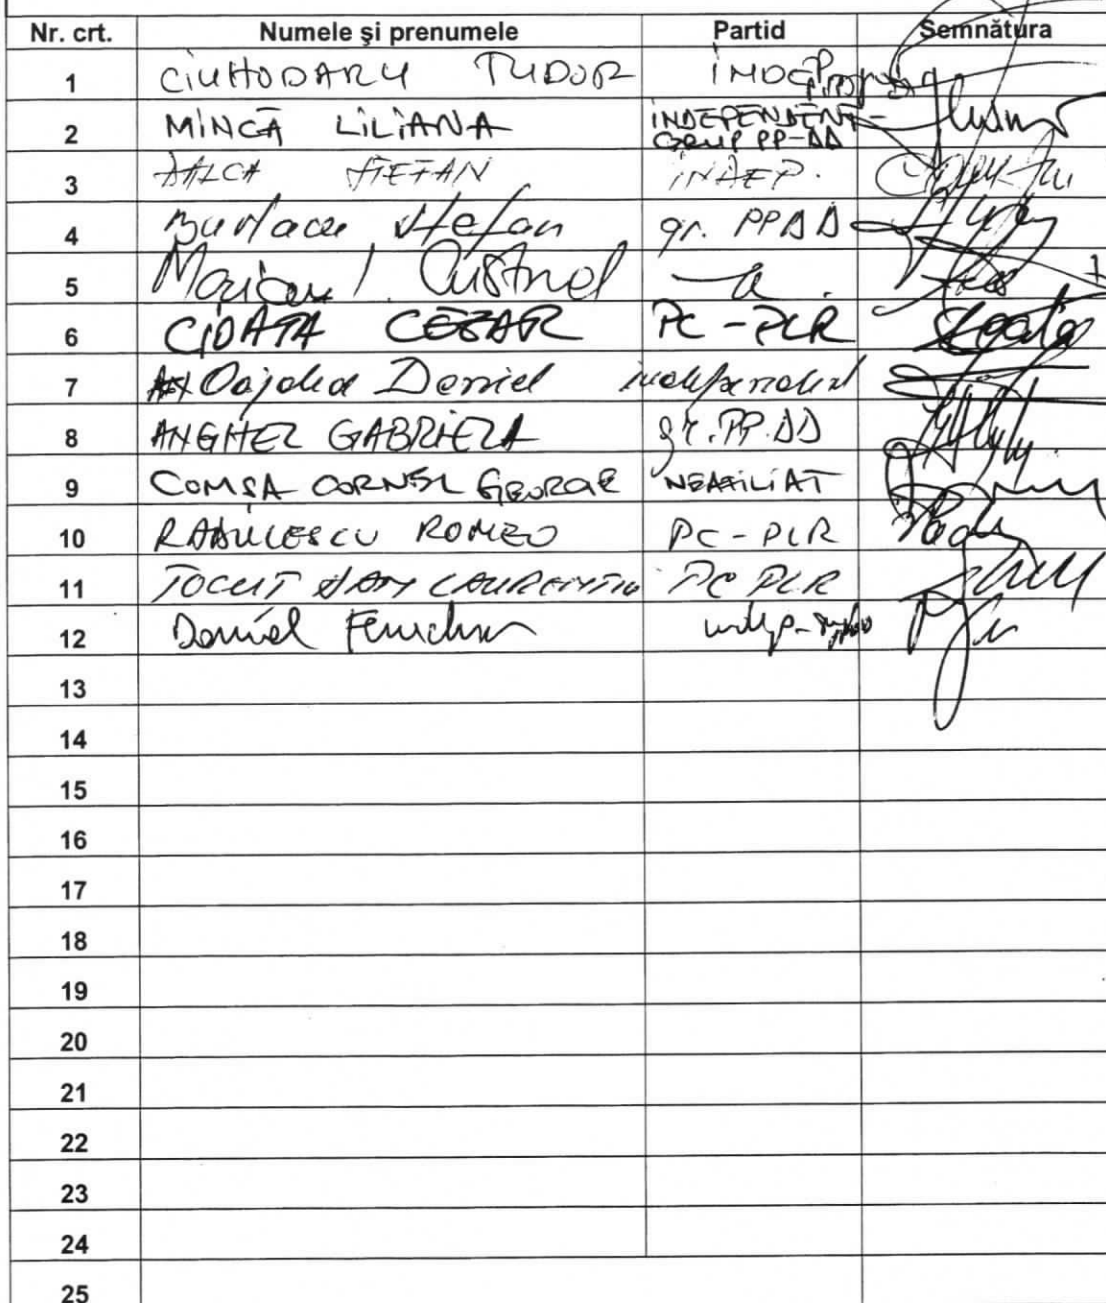 Nr. crt. Numele și prenumele Partid Semnătura
1 CIUHODARU TUDOR INDEP.
2 MINCĂ LILIANA INDEPENDENT-
GRUP PP-DD
3 DALCA ȘTEFAN INDEP.
4 Burlacu Ștefan gr. PPDD
5
6 CIOATA CEZAR PC-PLR
7 Oajdea Daniel independent
8 ANGHEL GABRIELA gr. PP.DD
9 COMȘA CORNEL GEORGE NEAFILIAT
10 RADULESCU ROMEO PC-PLR
11 TOCUT DAN LAURENTIU PC PLR
12 Daniel
13
14
15
16
17
18
19
20
21
22
23
24
25